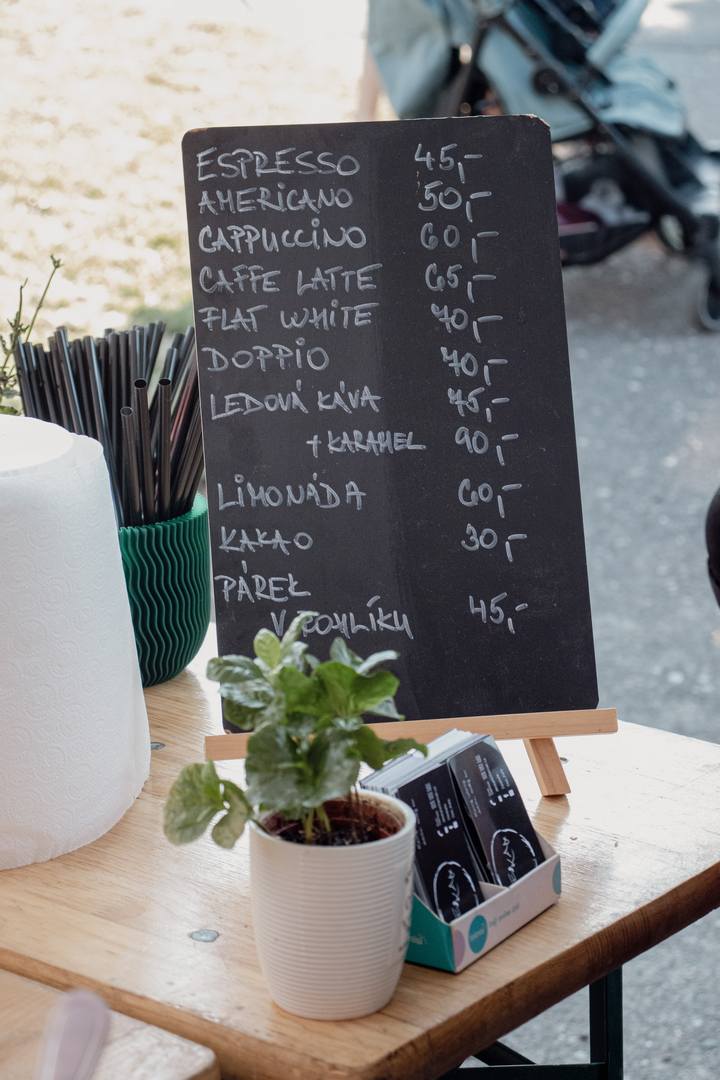 ESPRESSO 45,-
AMERICANO 50,-
CAPPUCCINO 60,-
CAFFE LATTE 65,-
FLAT WHITE 70,-
DOPPIO 70,-
LEDOVÁ KÁVA 75,-
+ KARAMEL 90,-
LIMONÁDA 60,-
KAKAO 30,-
PÁREK
V ROHLÍKU 45,-